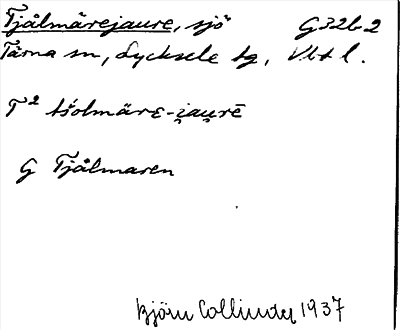 Tjålmärejaure, sjö G32b2
Tärna sn, Lycksele lg, Vbt l.
T² tšolmärɛ-i̯au̯rē
G Tjålmaren
Björn Collinder 1937